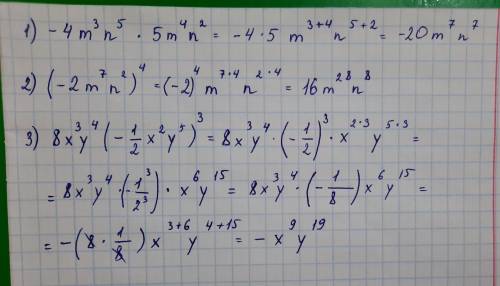 1) -4m³n⁵ · 5m⁴n² = -4·5 m³⁺⁴n⁵⁺² = -20m⁷n⁷
2) (-2m⁷n²)⁴ = (-2)⁴ m⁷·⁴n²·⁴ = 16m²⁸n⁸
3) 8x³y⁴(-1/2 x²y⁵)³ = 8x³y⁴ · (-1/2)³ · x²·³y⁵·³ =
= 8x³y⁴ · (-1³/2³) · x⁶y¹⁵ = 8x³y⁴ · (-1/8) x⁶y¹⁵ =
= -(8 · 1/8) x³⁺⁶y⁴⁺¹⁵ = -x⁹y¹⁹